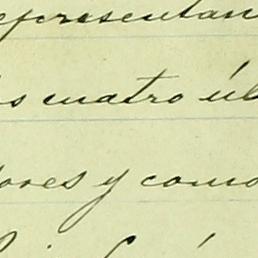 representan
os cuatro úl
dores y como